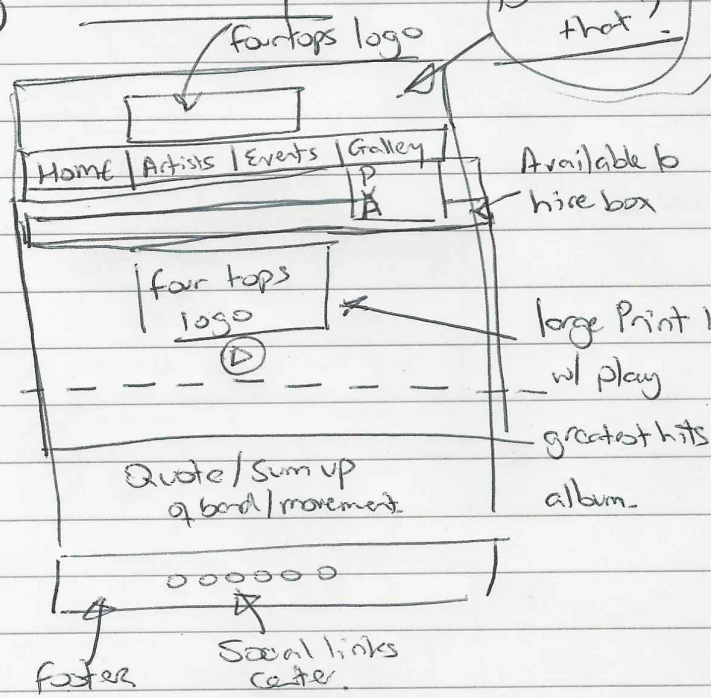 that!
fourtops logo
Home | Artists | Events | Galley
P
A
Available to
hire box
four tops
logo
large Print
w/ play
greatest hits
album.
Quote/Sum up
of band/movement
Social links
center.
footer